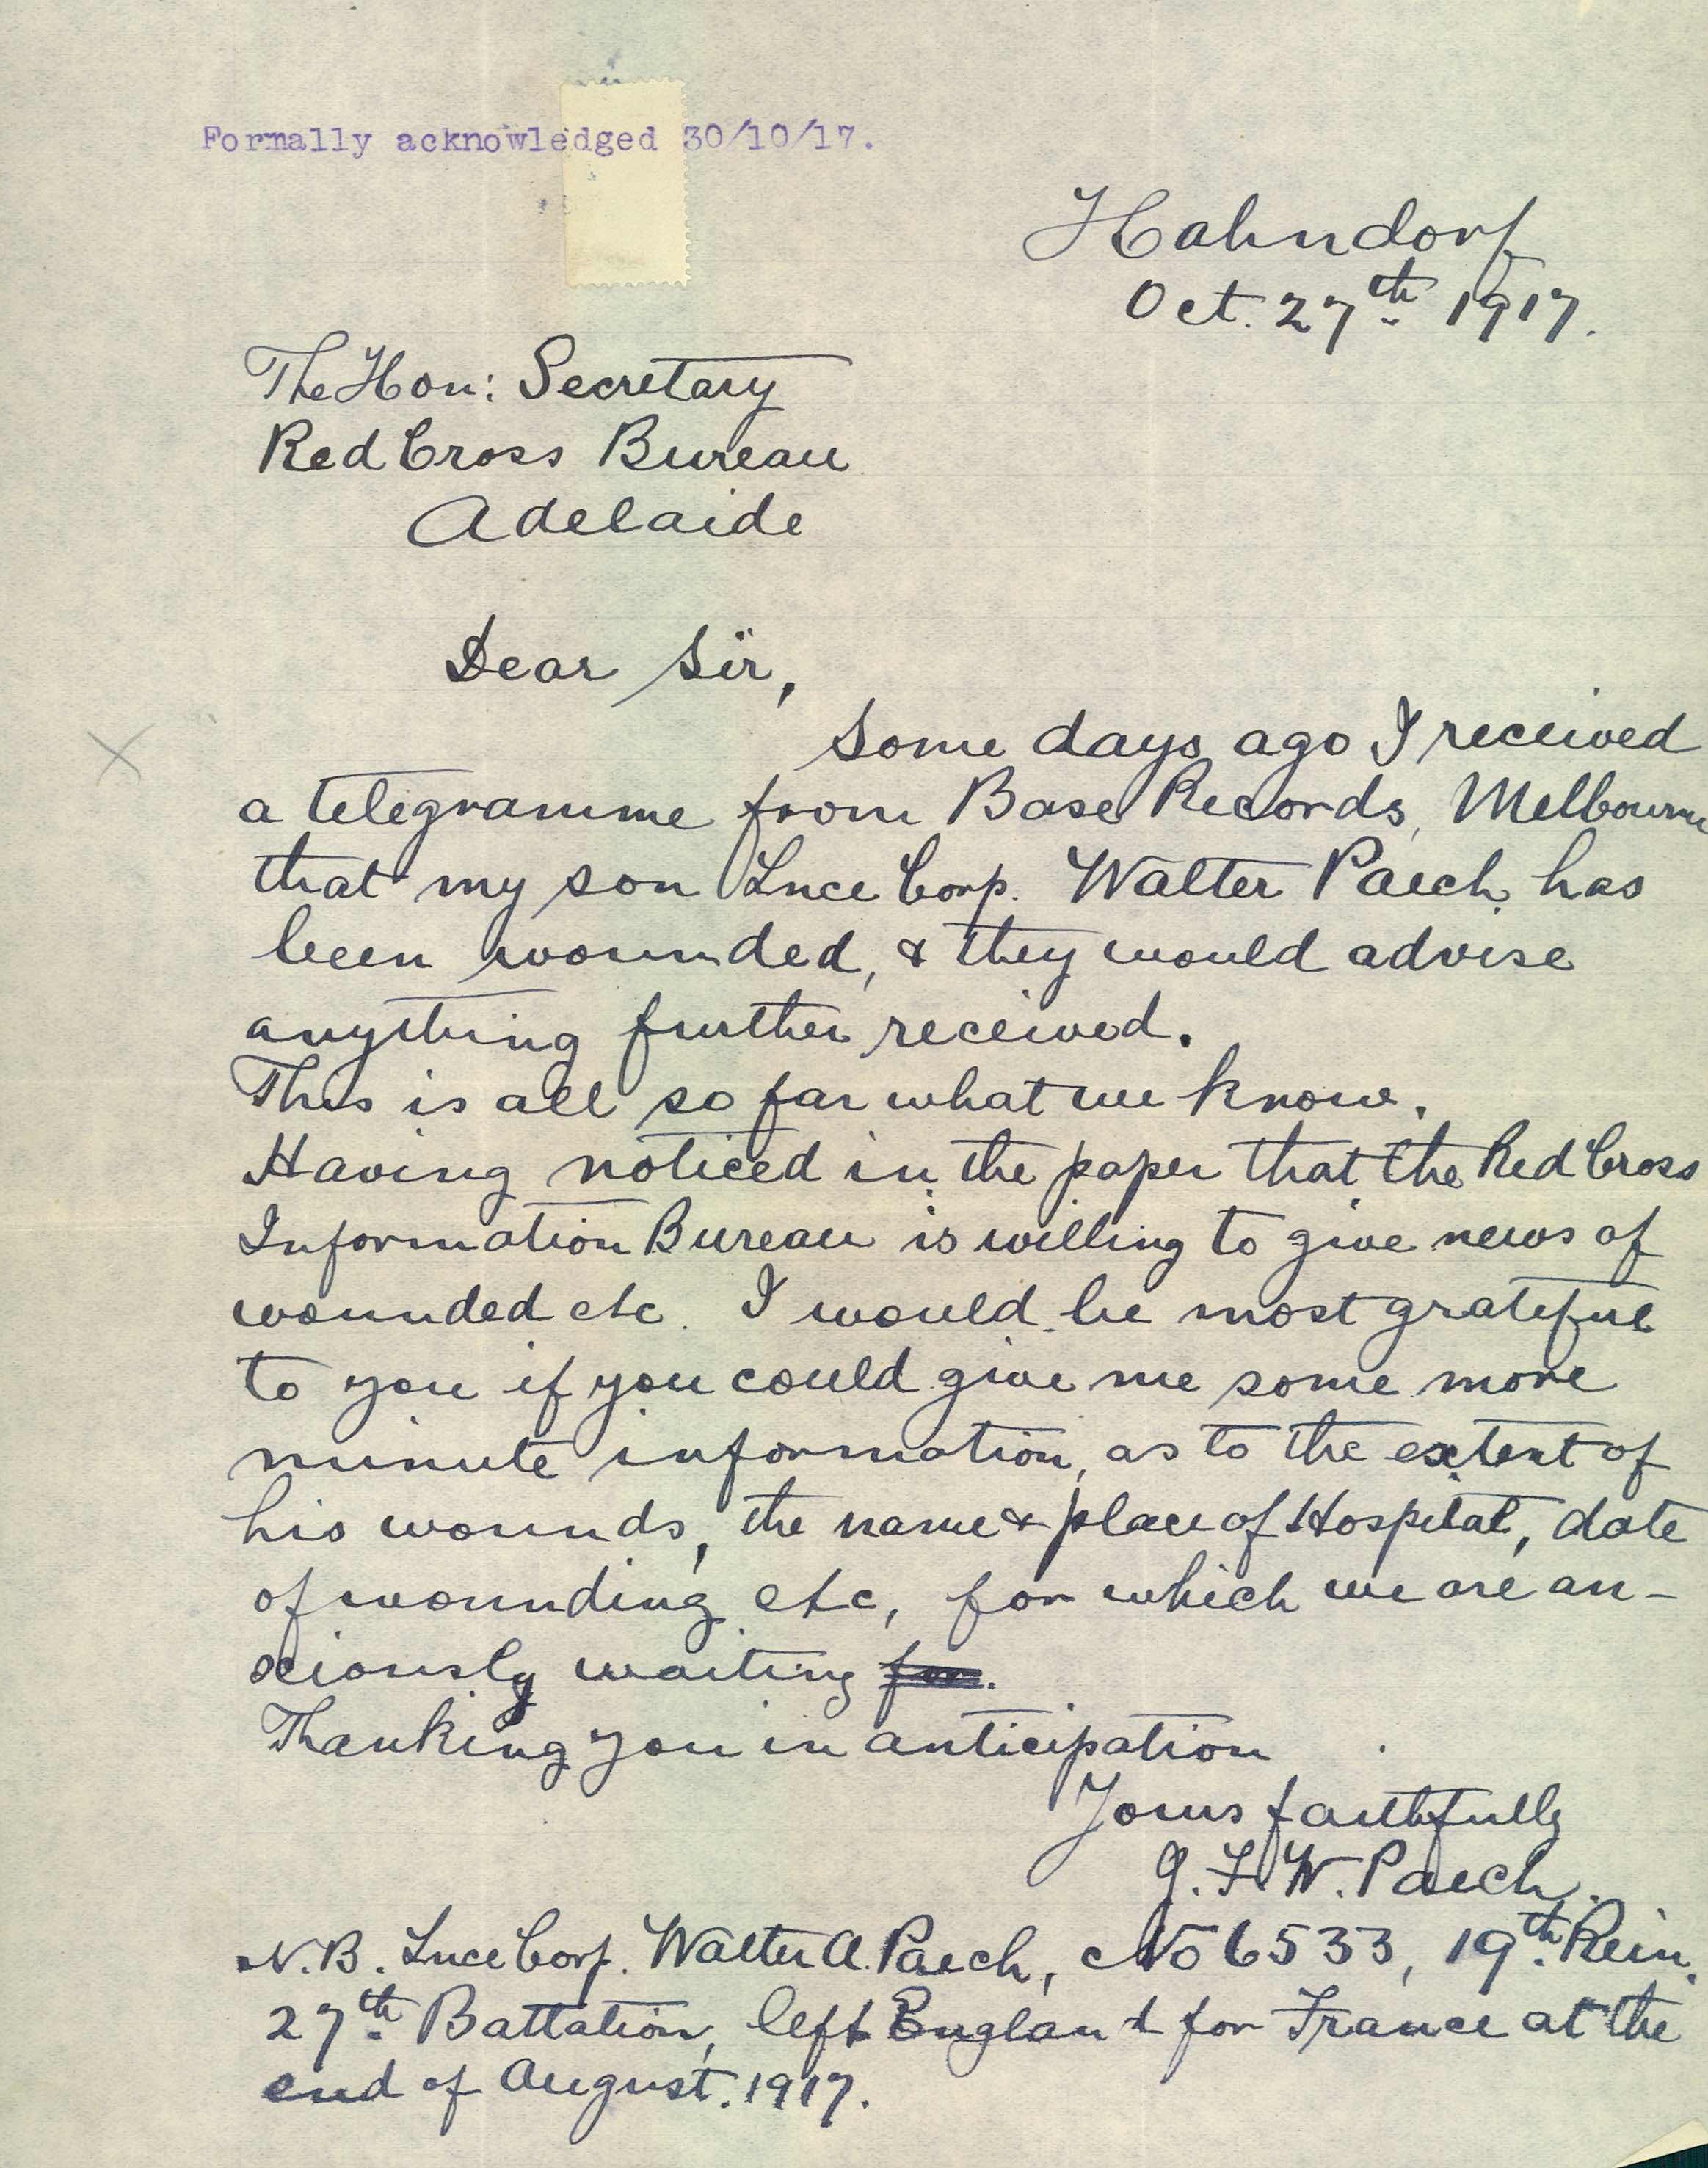 Formally acknowledged 30/10/17.
Hahndorf
Oct. 27th 1917.
The Hon: Secretary
Red Cross Bureau
Adelaide
Dear Sir,
Some days ago I received
a telegramme from Base Records, Melbourne
that my son Lnce Corp. Walter Paech has
been wounded, & they would advise
anything further received.
This is all so far what we know.
Having noticed in the paper that the Red Cross
Information Bureau is willing to give news of
wounded etc. I would be most grateful
to you if you could give me some more
minute information, as to the extent of
his wounds, the name & place of Hospital, date
of wounding etc, for which we are an-
xiously waiting for.
Thanking you in anticipation
Yours faithfully
J. F. W. Paech.
N.B. Lnce Corp. Walter A. Paech, No 6533, 19th Rein.
27th Battalion, left England for France at the
end of August. 1917.